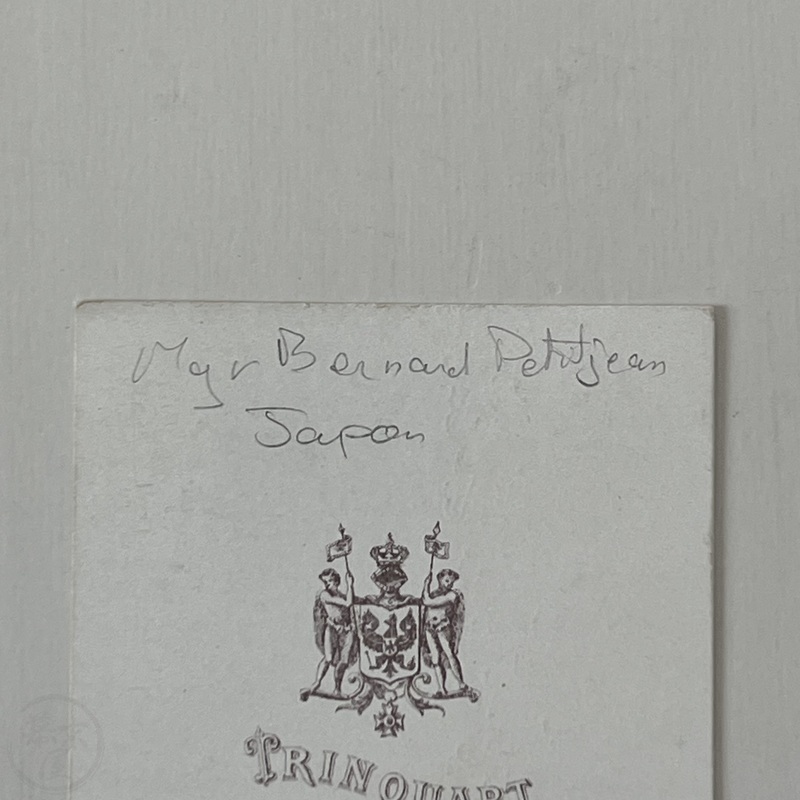 Mgr Bernard Petitjean
Japon
TRINQUART